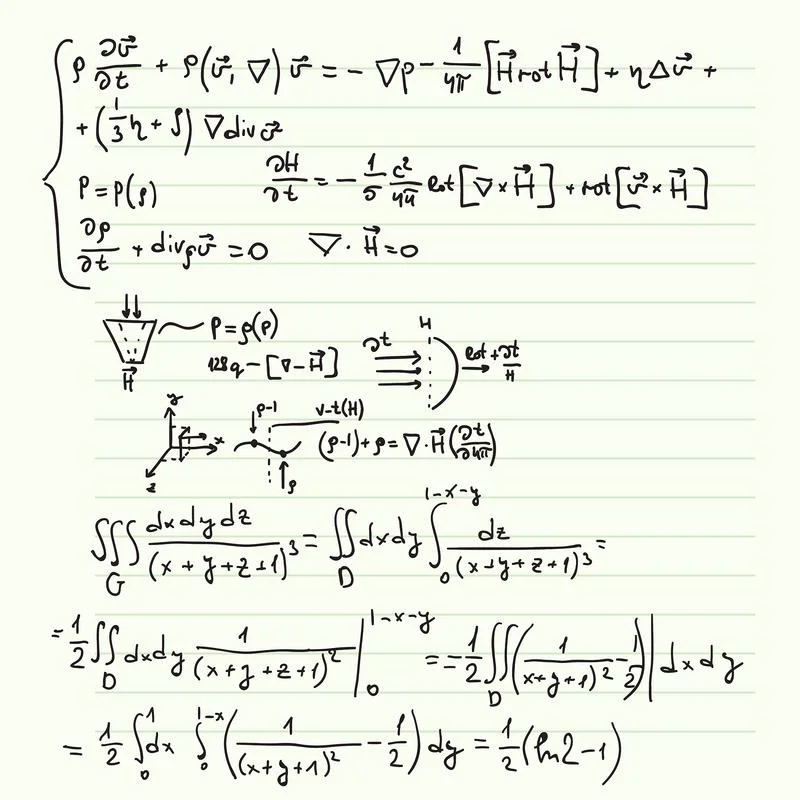 ρ ∂v⃗/∂t + ρ(v⃗, ∇) v⃗ = - ∇p - 1/4π [H⃗ rot H⃗] + η Δ v⃗ +
+ (1/3 η + ζ) ∇ div v⃗
P = P(ρ) ∂H/∂t = - 1/σ c²/4π rot [∇ × H⃗] + rot [v⃗ × H⃗]
∂ρ/∂t + div ρv⃗ = 0 ∇ · H⃗ = 0
P = ρ(ρ)
128q - [∇ - H⃗]
H⃗
∂t
H
rot + ∂t/H
y
x
z
ρ-1
v-t(H)
(ρ-1) + ρ = ∇ · H⃗ (∂t/∂4π)
ρ
∭_G dx dy dz/(x + y + z + 1)³ = ∬_D dx dy ∫_0^{1-x-y} dz/(x + y + z + 1)³ =
= 1/2 ∬_D dx dy 1/(x + y + z + 1)² |_0^{1-x-y} = -1/2 ∬_D (1/(x+y+1)² - 1/2)| dx dy
= 1/2 ∫_0^1 dx ∫_0^{1-x} (1/(x+y+1)² - 1/2) dy = 1/2 (ln2 - 1)